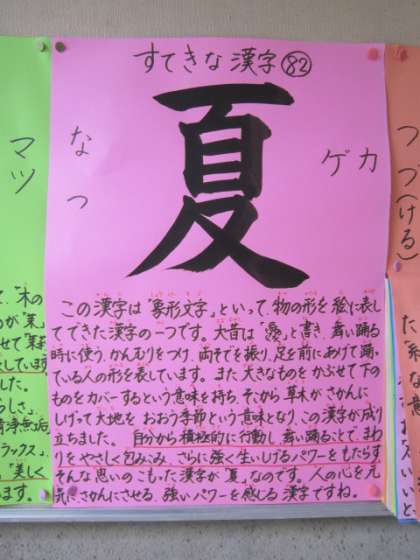 すてきな漢字 82
夏
なつ
カ
ゲ
この漢字は「象形文字」といって、物の形を絵に表し
てできた漢字の一つです。大昔は「」と書き、舞い踊る
時に使う、かんむりをつけ、両そでを振り、足を前にあげて踊っ
ている人の形を表しています。また、大きなものをかぶせて下の
ものをカバーするという意味を持ち、そから草木がさかんに
しげって大地をおおう季節という意味となり、この漢字が成り
立ちました。自分から積極的に行動し、舞い踊ることで、まわ
りをやさしく包みこみ、さらに強く生いしげるパワーをもたらす
そんな思いのこもった漢字が「夏」なのです。人の心を元
気にさかんにさせる、強いパワーを感じる漢字ですね。
マツ
つづ(ける)